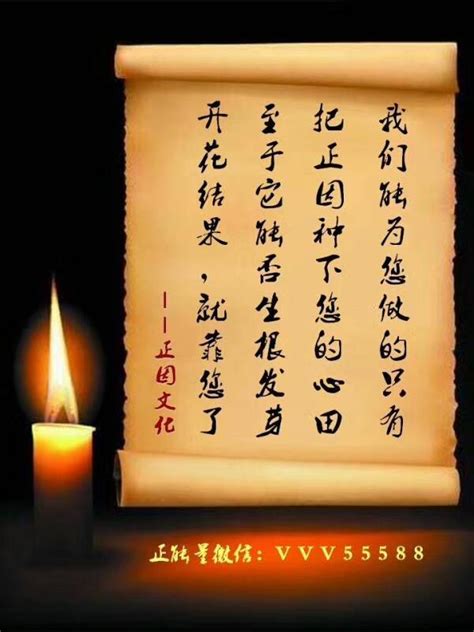 我们能为您做的只有
把正因种下您的心田
至于它能否生根发芽
开花结果，就靠您了
——正因文化
正能量微信：VVV55588